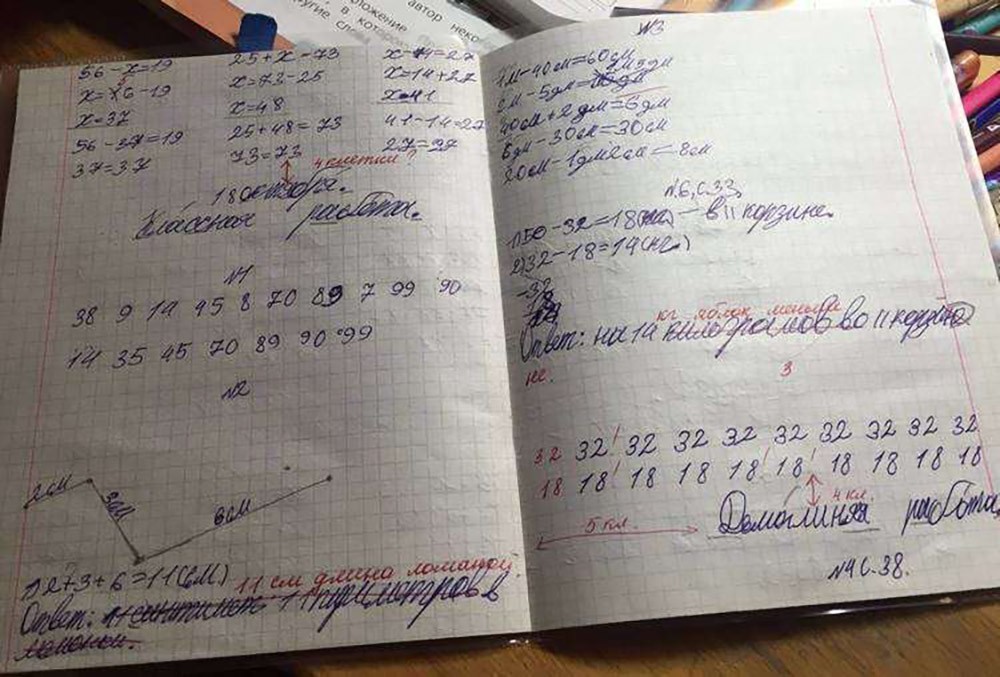 56-x=19
x=56-19
x=37
56-37=19
37=37
25+x=73
x=73-25
x=48
25+48=73
73=73
x-14=27
x=14+27
x=41
41-14=27
27=27
4 клетки?
18 октября.
Классная работа.
№1
38 9 14 45 8 70 89 7 99 90
14 35 45 70 89 90 99
№2
2см
3см
6см
1) 2+3+6=11(см.)
11 см длина ломаной
Ответ: 11 периметров в
№3
1м-40см=60см
40см+2дм=6дм
6дм-30см=30см
20см-1дм2см=8см
№6, С.33
1) 50-32=18(кг) - в II корзине.
2) 32-18=14(кг.)
-32
18
14
кг яблок меньше
Ответ: на 14 во II корзи
не.
3
32 32 32 32 32 32 32 32 32 32
18 18 18 18 18 18 18 18 18 18
4 кл.
5 кл.
Домашняя работа
№4 С.38.